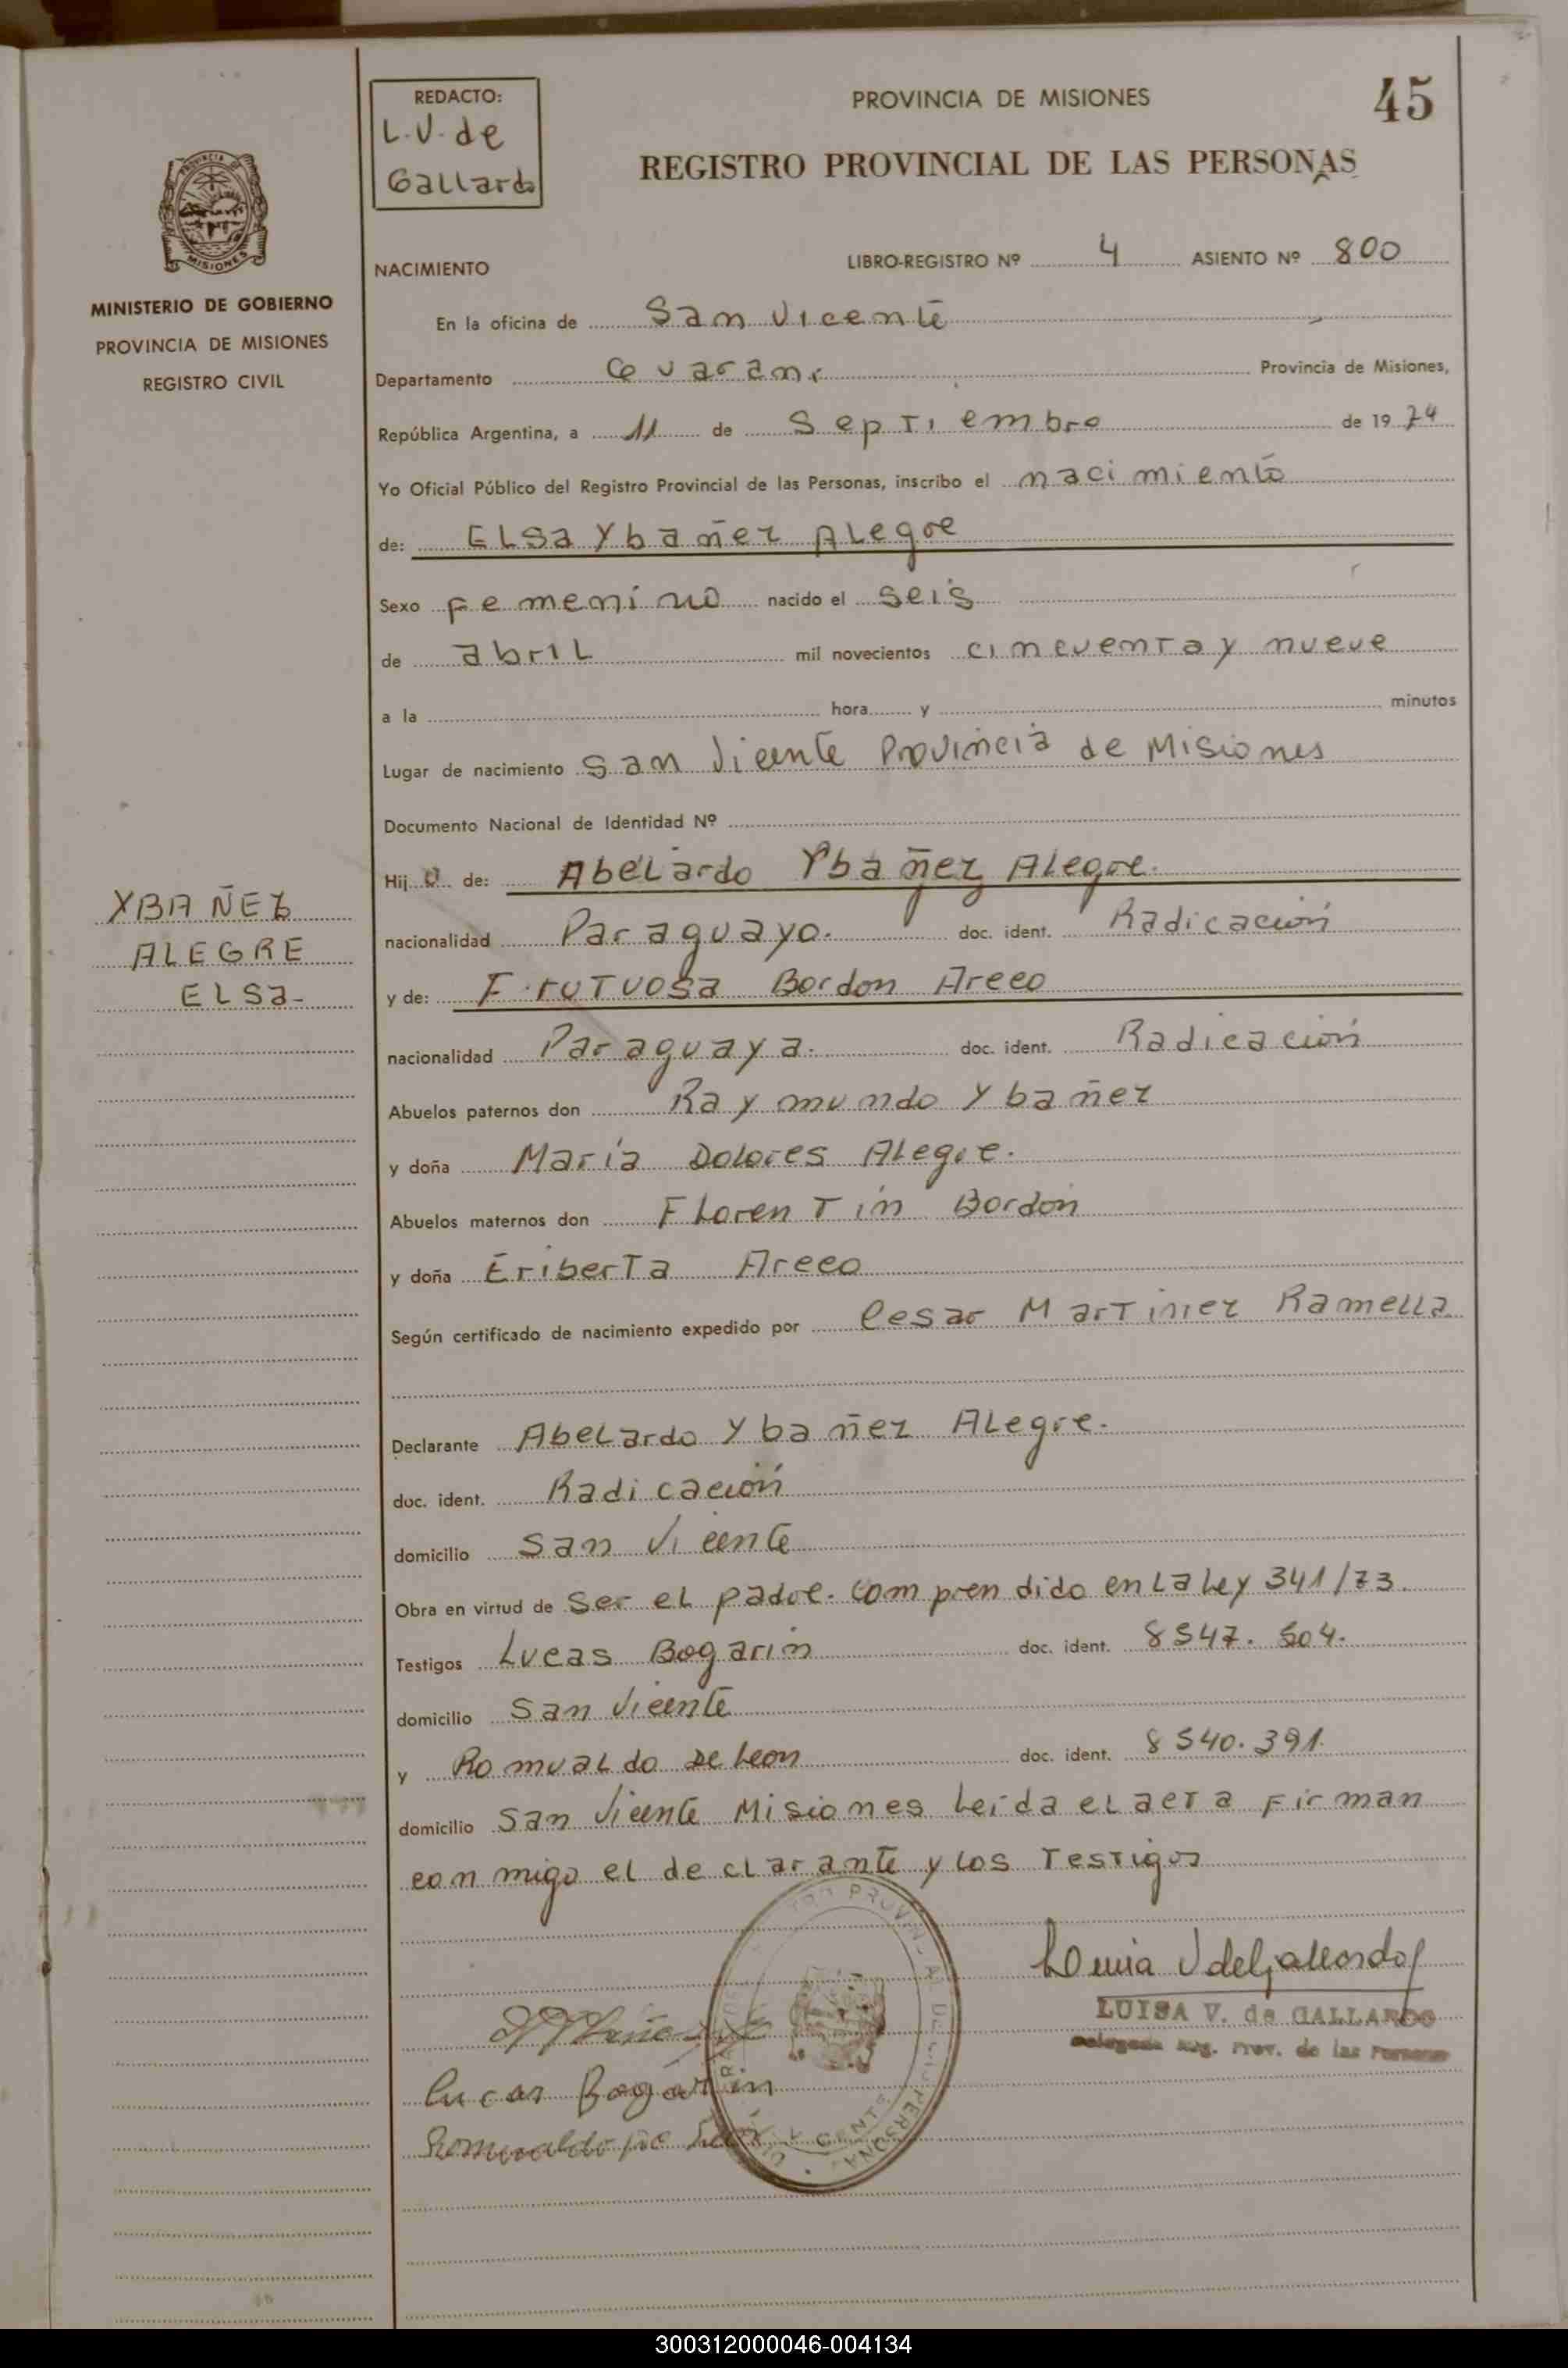 REDACTO:
L.V. de
Gallardo
PROVINCIA DE MISIONES
45
REGISTRO PROVINCIAL DE LAS PERSONAS
MISIONES
MINISTERIO DE GOBIERNO
PROVINCIA DE MISIONES
REGISTRO CIVIL
NACIMIENTO
LIBRO-REGISTRO Nº 4 ASIENTO Nº 800
En la oficina de San Vicente
Departamento Guarani Provincia de Misiones,
República Argentina, a 11 de Septiembre de 1974
Yo Oficial Público del Registro Provincial de las Personas, inscribo el nacimiento
de: ELSa Ybañez ALegre
Sexo Femenino nacido el Seis
de abriL mil novecientos cincuenta y nueve
a la hora y minutos
Lugar de nacimiento San Vicente Provincia de Misiones
Documento Nacional de Identidad Nº
Hij o de: AbeLardo Ybañez ALegre.
nacionalidad Paraguayo. doc. ident. Radicación
y de: Frutuosa Bordon Areco
nacionalidad Paraguaya. doc. ident. Radicación
Abuelos paternos don Raymundo Ybañez
y doña María DoLores ALegre.
Abuelos maternos don FLorentín Bordón
y doña Eriberta Areco
Según certificado de nacimiento expedido por Cesar Martinez Ramella
YBAÑEZ
ALEGRE
ELSa-
Declarante AbeLardo Ybañez ALegre.
doc. ident. Radicación
domicilio San Vicente
Obra en virtud de Ser eL padre. Comprendido en La Ley 341/73.
Testigos Lucas Bogarin doc. ident. 8547.504.
domicilio San Vicente
y RomuaLdo De Leon doc. ident. 8540.391.
domicilio San Vicente Misiones Leida eL acta Firman
conmigo el declarante y Los Testigos
LUISA V. de GALLARDO
Delegada Reg. Prov. de las Personas
Lucas Bogarin
Romualdo De León
300312000046-004134